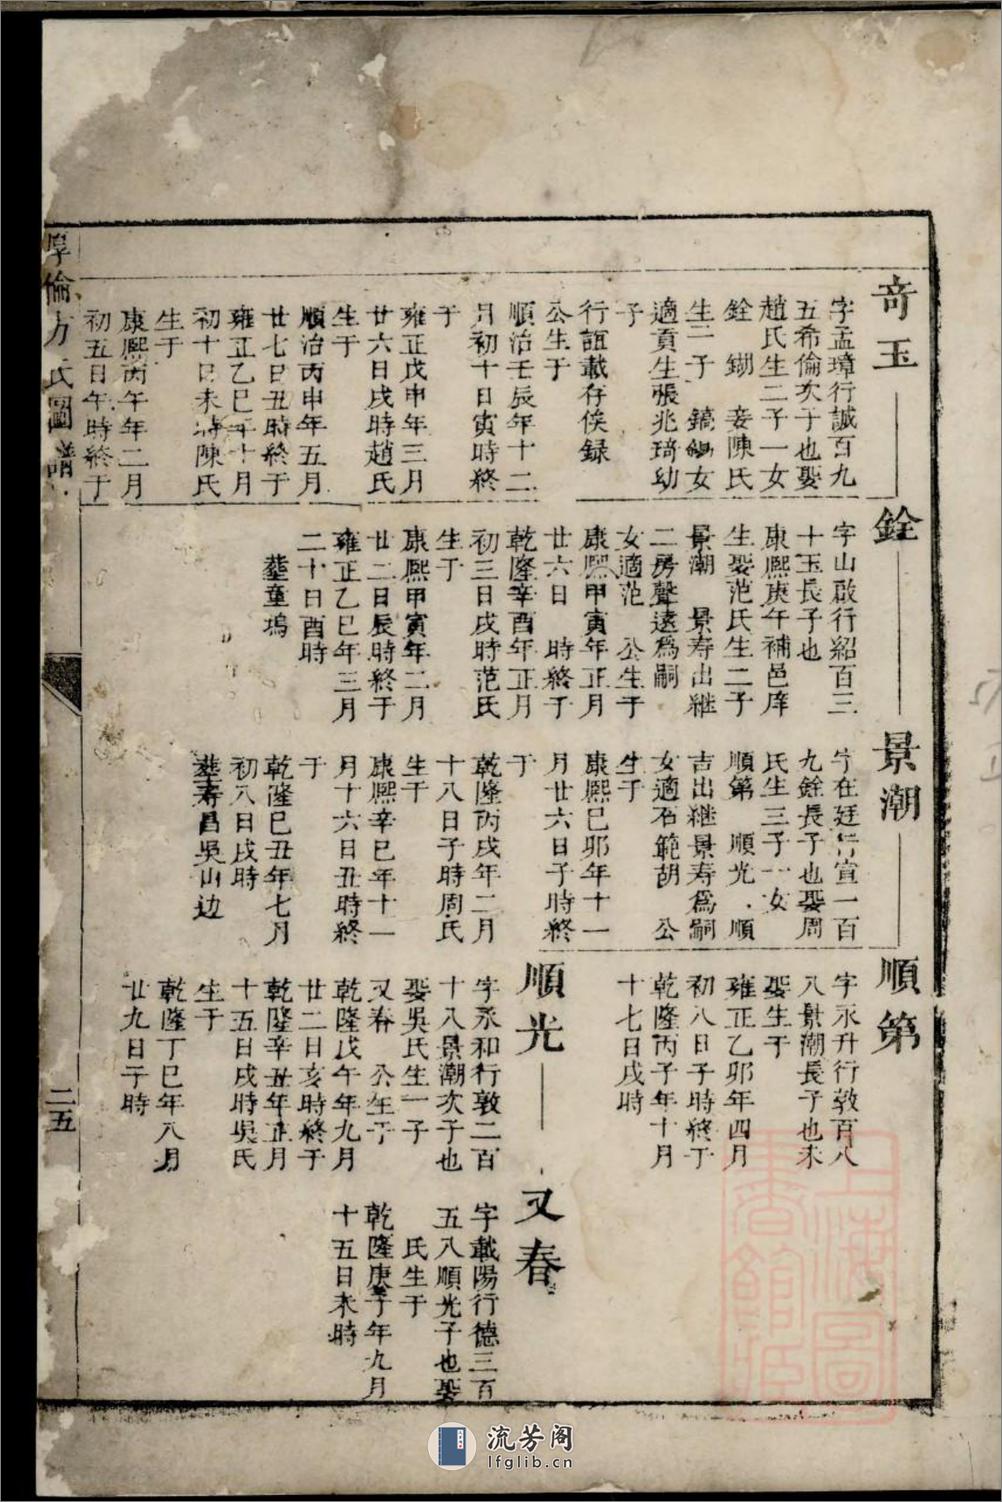 奇玉
字孟璋行誠百九
五希倫次子也娶
趙氏生二子一女
銓 鋤 妾陳氏
生二子 鎬 女
適貢生張兆琦幼
子
行誼載存俟録
公生于
順治壬辰年十二
月初十日寅時終
于
雍正戊申年三月
廿六日戌時趙氏
生于
順治丙申年五月
廿七日丑時終于
雍正乙巳年十月
初十日未時陳氏
生于
康熙丙午年二月
初五日午時終于
銓
字山啟行紹百三
十玉長子也
康熙庚午補邑庠
生娶范氏生二子
景潮 景寿出継
二房聲遠為嗣
女適范 公生于
康熙甲寅年正月
廿六日 時終于
乾隆辛酉年正月
初三日戌時范氏
生于
康熙甲寅年二月
廿二日辰時終于
雍正乙巳年三月
二十日酉時
塟童塢
景潮
字在廷行宣一百
九銓長子也娶周
氏生三子一女
順第 順光 順
吉出継景寿為嗣
女適石範胡 公
生于
康熙己卯年十一
月廿六日子時終
于
乾隆丙戌年二月
十八日子時周氏
生于
康熙辛巳年十一
月十六日丑時終
于
乾隆己丑年七月
初八日戌時
塟寿昌吳山边
順第
字永升行敦百八
八景潮長子也未
娶生于
雍正乙卯年四月
初八日子時終于
乾隆丙子年十月
十七日戌時
順光
字永和行敦二百
十八景潮次子也
娶吳氏生一子
又春 公生于
乾隆戊午年九月
廿二日亥時終于
乾隆辛丑年正月
十五日戌時吳氏
生于
乾隆丁巳年八月
廿九日子時
又春
字載陽行德三百
五八順光子也娶
氏生于
乾隆庚子年九月
十五日未時
厚倫方氏圖譜
二五
上海圖書館藏
流芳阁
lfglib.cn